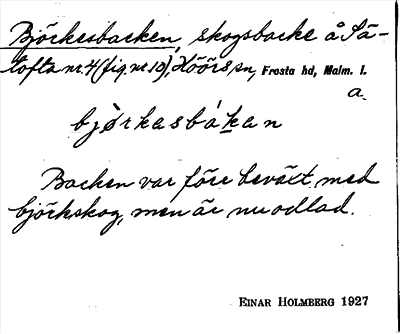 Björkesbacken, skogsbacke å Sä-
tofta nr 4 (fig. nr 10), Höörs sn, Frosta hd, Malm. l.
a.
bjòrkasbákan
Backen var förr beväxt med
björkskog, men är nu odlad.
EINAR HOLMBERG 1927